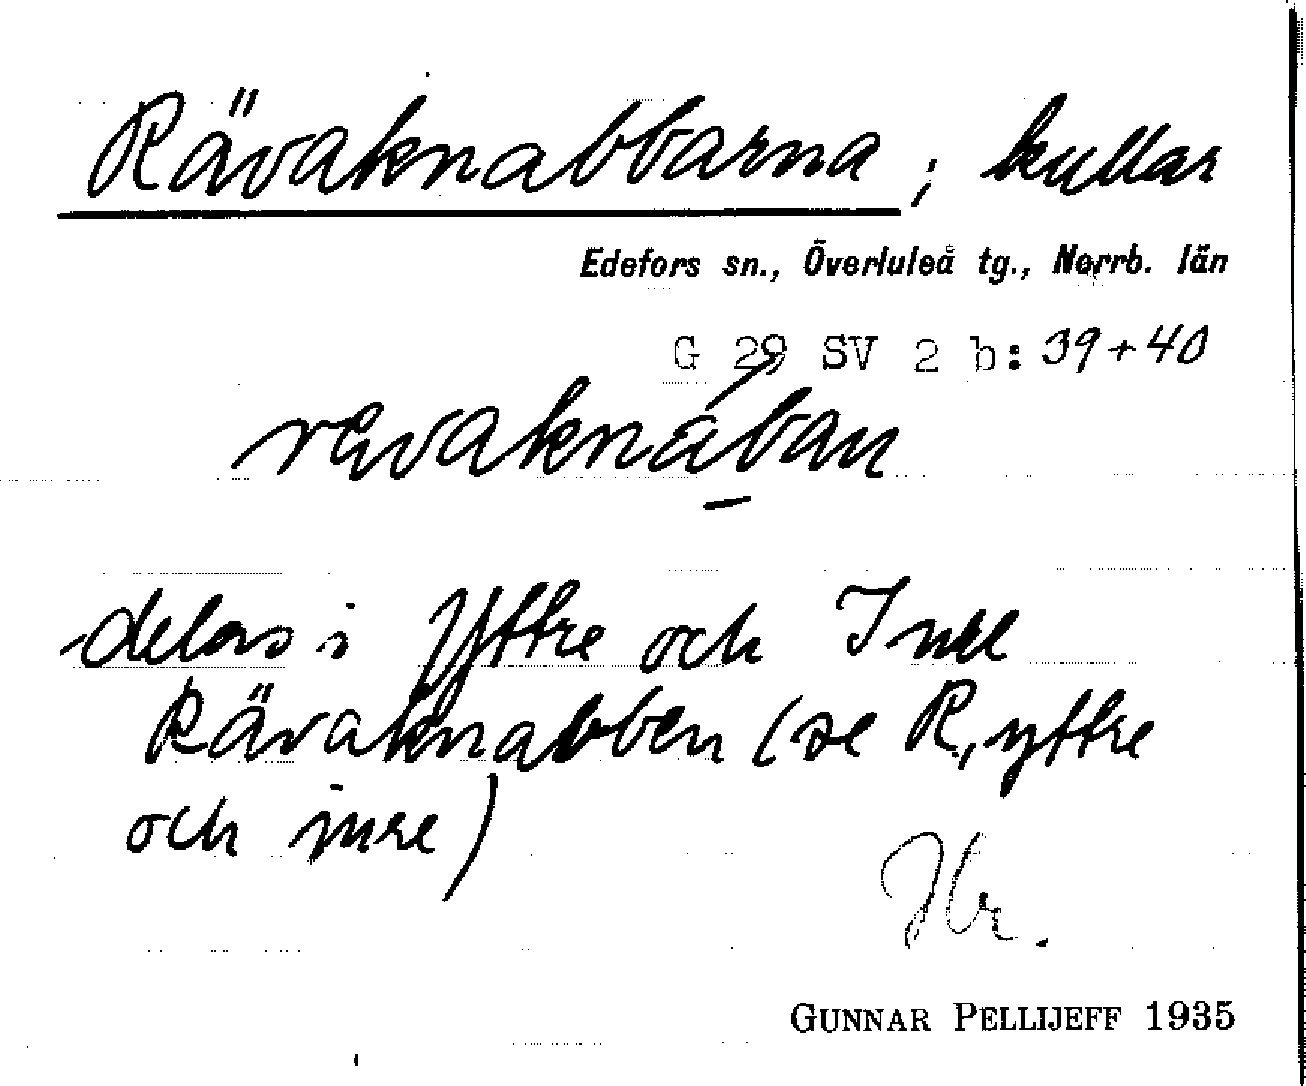 Rävaknabbarna; kullar
Edefors sn., Överluleå tg., Norrb. län
G 29 SV 2 b: 39+40
delas i Yttre och Inre
Rävaknabben (se R, yttre
och inre)
GUNNAR PELLIJEFF 1935